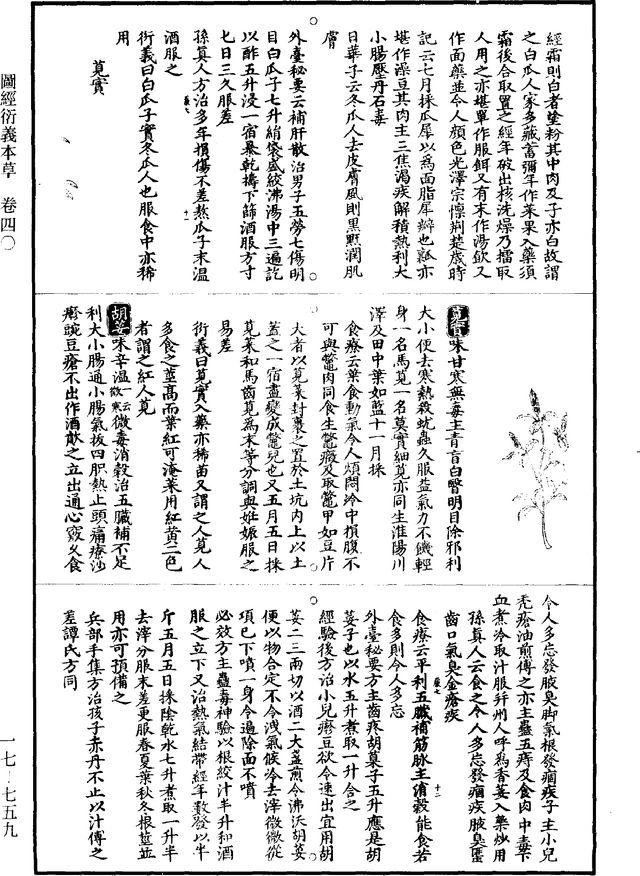 經霜則白者塗粉其中肉及子亦白故謂
之白瓜人家多藏蓄彌年作菜果入藥須
霜後合取置之經年破出核洗燥乃擂取
人用之亦堪單作服餌又有末作湯飲又
作面藥並令人顏色光澤宗懍荆楚歲時
記云七月採瓜犀以為面脂犀瓣也瓤亦
堪作澡豆其肉主三焦濕疾解積熱利大
小腸壓丹石毒
日華子云冬瓜人去皮膚風則黑䵟潤肌
膚
外臺秘要云補肝散治男子五勞七傷明
目白瓜子七升絹袋盛絞沸湯中三遍訖
以酢五升浸一宿暴乾擣下篩酒服方寸
七日三久服差
孫真人方治多年損傷不差熬瓜子末温
酒服之
衍義曰白瓜子實冬瓜人也服食中亦稀
用
莧實
莧實味甘寒無毒主青盲白瞖明目除邪利
大小便去寒熱殺蚘蟲久服益氣力不饑輕
身一名馬莧一名莫實細莧亦同生淮陽川
澤及田中葉如藍十一月採
食療云葉食動氣令人煩悶冷中損腹不
可與鼈肉同食生鼈癥又取鼈甲如豆片
大者以莧菜封裹之置於土坑内上以土
蓋之一宿盡變成鼈兒也又五月五日採
莧菜和馬齒莧為末等分調與妊娠服之
易差
衍義曰莧實入藥亦稀苗又謂之人莧人
多食之莖高而葉紅可淹菜用紅黃二色
者謂之紅人莧
胡荽味辛温一云微寒微毒消穀治五臟補不足
利大小腸通小腸氣拔四肢熱止頭痛療沙
疹豌豆瘡不出作酒歕之立出通心竅久食
令人多忘發腋臭脚氣根發痼疾子主小兒
禿瘡油煎傅之亦主蟲五痔及食肉中毒下
血煮冷取汁服并州人呼為香荽入藥炒用
孫真人云食之令人多忘發痼疾腋臭䘌
齒口氣臭金瘡疾
食療云平利五臟補筋脉主消穀能食若
食多則令人多忘
外臺秘要方主齒疼胡菓子五升應是胡
荽子也以水五升煮取一升含之
經驗後方治小兒疹豆欲令速出宜用胡
荽二三兩切以酒二大盞煎令沸沃胡荽
便以物合定不令洩氣候冷去滓微微從
項已下噴一身令遍除面不噴
必效方主蟲毒神驗以根絞汁半升和酒
服之立下又治熱氣結帶經年數發以半
斤五月五日採陰乾水七升煮取一升半
去滓分服末差更服春夏葉秋冬根莖並
用亦可預備之
兵部手集方治孩子赤丹不止以汁傅之
差譚氏方同
圖經衍義本草 卷四〇
一七-七五九